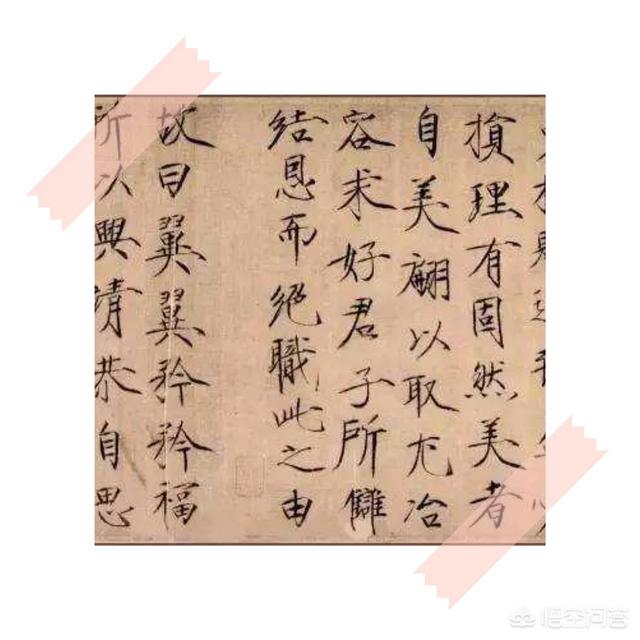 損理有固然美者
自美翩以取尤冶
容求好君子所讎
結恩而絕職此之由
故曰翼翼矜矜福
所以興靖恭自思
悟空问答